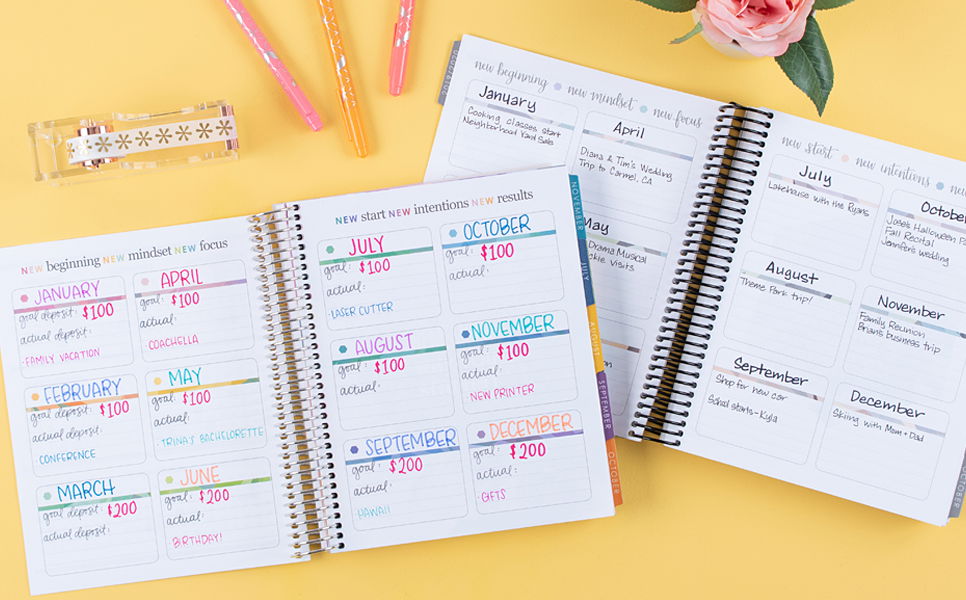 NEW beginning NEW mindset NEW focus
JANUARY
goal deposit: $100
actual deposit:
FAMILY VACATION
APRIL
goal: $100
actual:
COACHELLA
FEBRUARY
goal deposit: $100
actual deposit:
CONFERENCE
MAY
goal: $100
actual:
TRINA'S BACHELORETTE
MARCH
goal deposit: $200
actual deposit:
JUNE
goal: $200
actual:
BIRTHDAY!
NEW start NEW intentions NEW results
JULY
goal: $100
actual:
LASER CUTTER
OCTOBER
goal: $100
actual:
AUGUST
goal: $100
actual:
NOVEMBER
goal: $100
actual:
NEW PRINTER
SEPTEMBER
goal: $200
actual:
HAWAII
DECEMBER
goal: $200
actual:
GIFTS
NOVEMBER
JULY
AUGUST
SEPTEMBER
OCTOBER
new beginning new mindset new focus
January
Cooking classes start
Neighborhood Yard Sale
April
Diana & Tim's Wedding
Trip to Carmel, CA
May
Drama Musical
Visits
new start new intentions
July
Lakehouse with the Ryans
Octob
Jose's Halloween Pa
Fall Recital
Jennifer's wedding
August
Theme Park trip!
November
Family Reunion
Brian's business trip
September
Shop for new car
School starts-Kyla
December
Skiing with Mom + Dad
OCTOBER